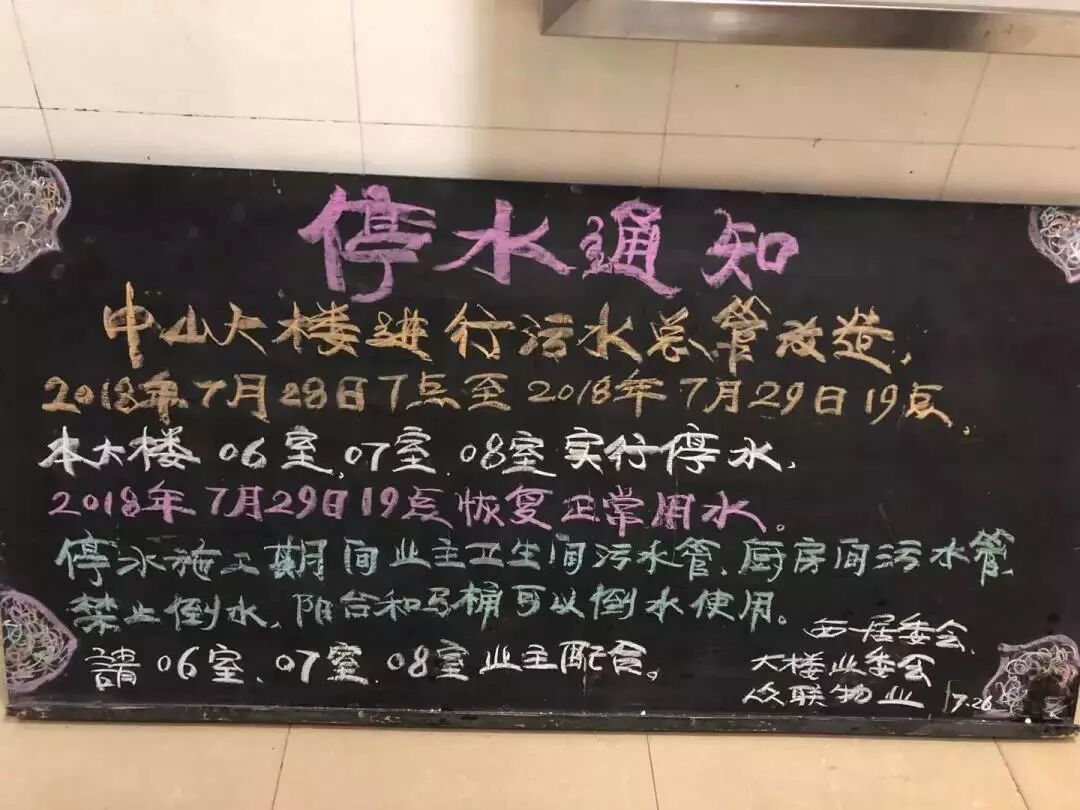 停水通知
中山大楼进行污水总管改造,
2018年7月28日7点至2018年7月29日19点,
本大楼06室,07室,08室实行停水,
2018年7月29日19点恢复正常用水。
停水施工期间业主卫生间污水管、厨房间污水管,
禁止倒水,阳台和马桶可以倒水使用。
請06室、07室、08室业主配合。
西一居委会,
大楼业委会
众联物业 7.26